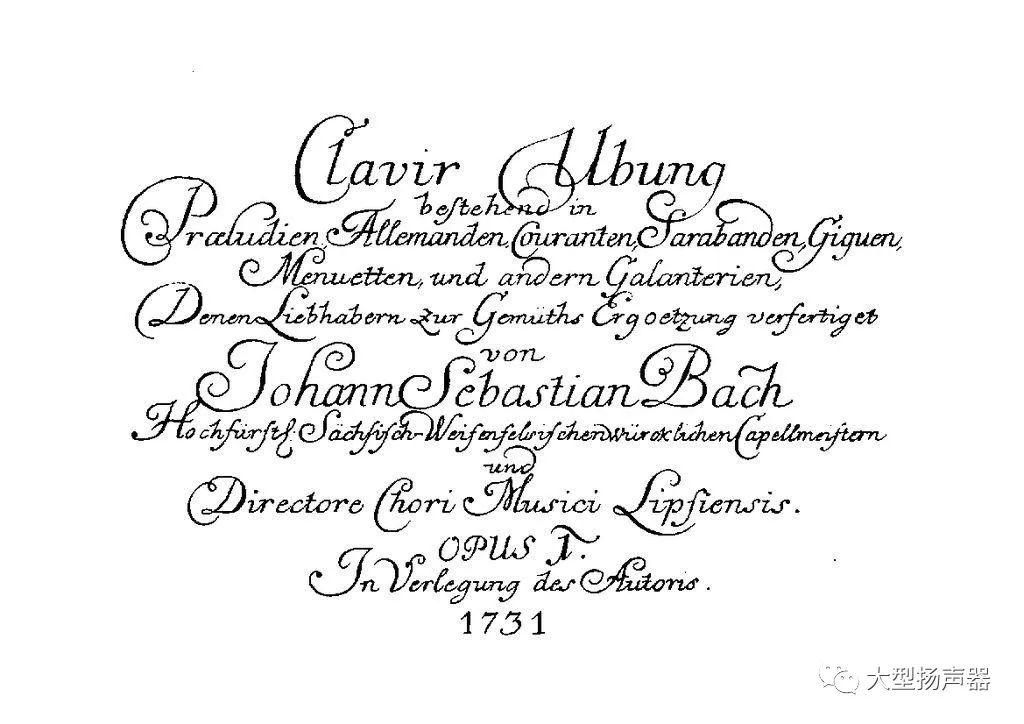 Clavir Ubung
bestehend in
Præludien, Allemanden, Couranten, Sarabanden, Giguen,
Menuetten, und andern Galanterien,
Denen Liebhabern zur Gemüths Ergoetzung verfertiget
von
Johann Sebastian Bach
Hochfürstl. Sächsisch-Weisenfelsischen würcklichen Capellmeistern
und
Directore Chori Musici Lipsiensis.
OPUS 1.
In Verlegung des Autoris.
1731
大型扬声器